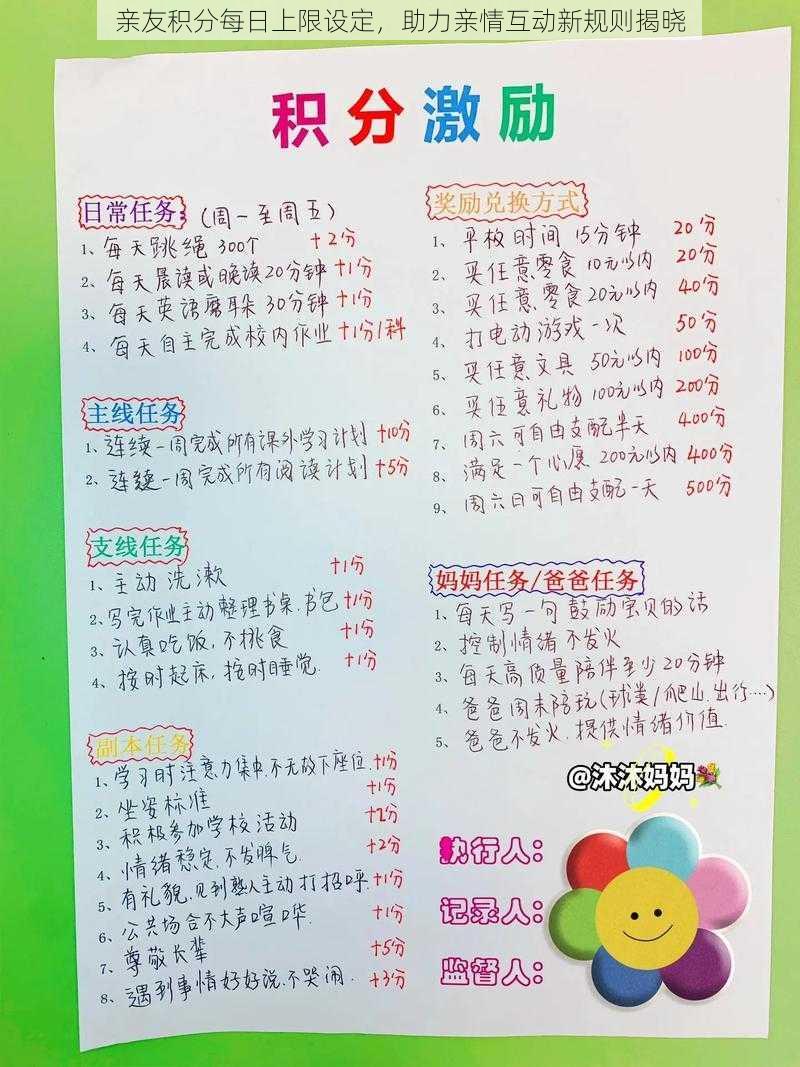 亲友积分每日上限设定，助力亲情互动新规则揭晓
积分激励
日常任务：(周一至周五)
1、每天跳绳300个 +2分
2、每天晨读或晚读20分钟 +1分
3、每天英語磨耳朵30分钟 +1分
4、每天自主完成校内作业 +1分/科
主线任务
1、连续一周完成所有课外学习计划 +10分
2、连续一周完成所有阅读计划 +5分
支线任务
1、主动洗漱 +1分
2、写完作业主动整理书桌、书包 +1分
3、认真吃饭，不挑食 +1分
4、按时起床，按时睡觉. +1分
副本任务
1、学习时注意力集中.不无故下座位. +1分
2、坐姿标准 +1分
3、积极参加学校活动 +2分
4、情绪稳定.不发脾气. +2分
5、有礼貌.见到熟人主动打招呼. +1分
6、公共场合不大声喧哗. +1分
7、尊敬长辈 +5分
8、遇到事情好好说.不哭闹. +3分
奖励兑换方式
1、平板时间 15分钟 20分
2、买任意零食10元以内 20分
3、买任意零食20元以内 40分
4、打电动游戏一次 50分
5、买任意文具 50元以内 100分
6、买任意礼物100元以内 200分
7、周六可自由支配半天 400分
8、满足一个心愿 200元以内 400分
9、周六日可自由支配一天 500分
妈妈任务/爸爸任务
1、每天写一句鼓励宝贝的话
2、控制情绪不发火
3、每天高质量陪伴至少20分钟
4、爸爸周末陪玩(球类/爬山.出行…)
5、爸爸不发火.提供情绪价值.
@沐沐妈妈
执行人：
记录人：
监督人：